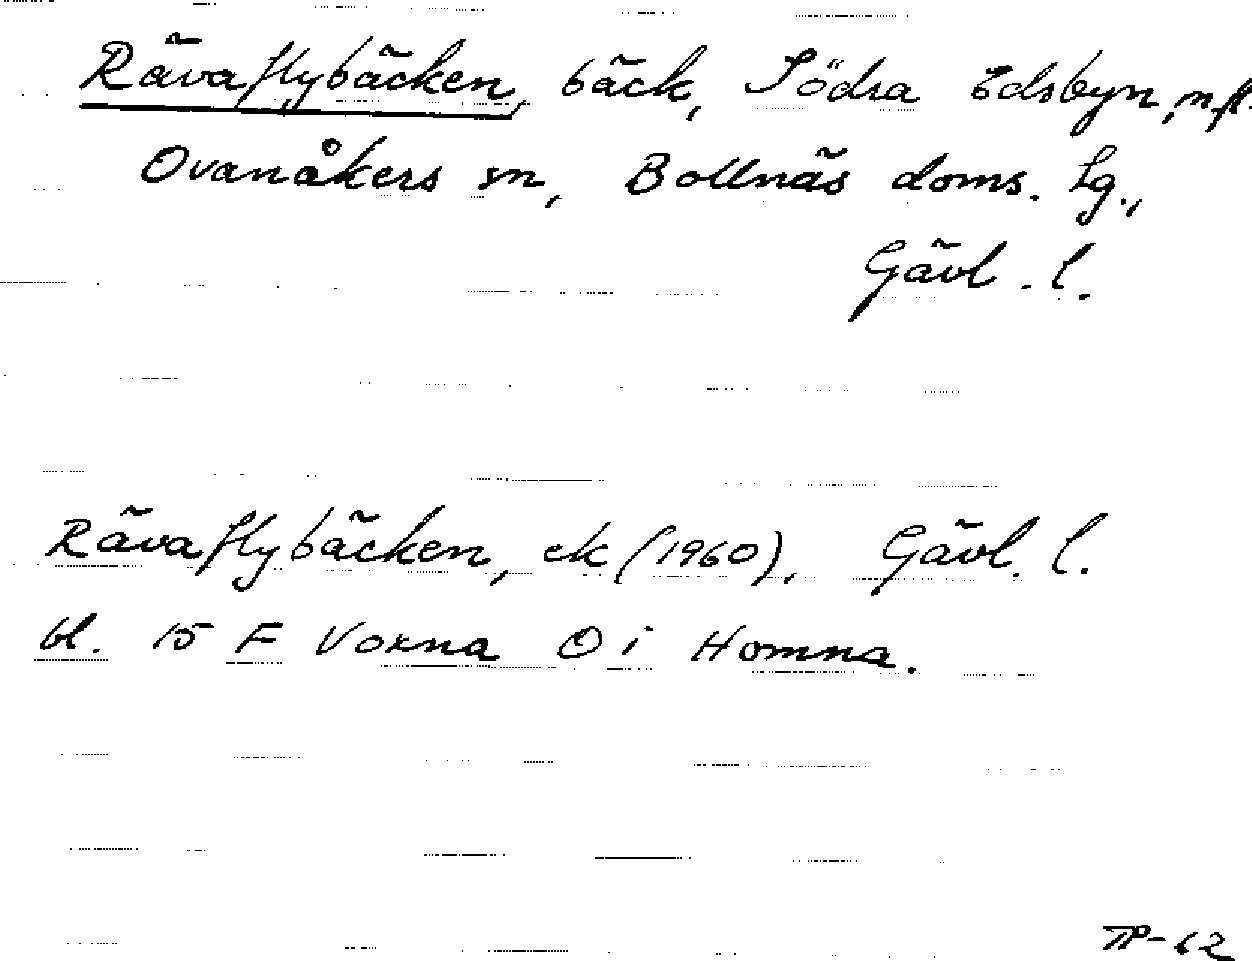 Rävaflybäcken, bäck, Södra Edsbyn, m.fl.
Ovanåkers sn, Bollnäs doms. Lg.,
Gävl. l.
Rävaflybäcken, ek (1960), Gävl. l.
bl. 15 F Voxna O i Homna.
TP-62